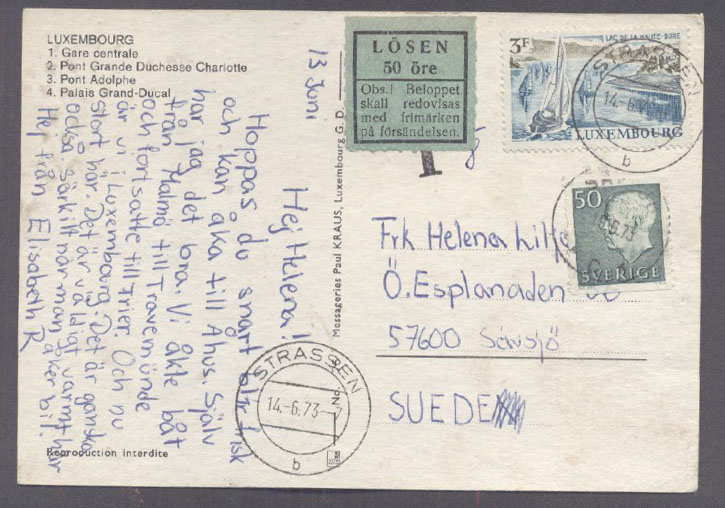 LUXEMBOURG
1. Gare centrale
2. Pont Grande Duchesse Charlotte
3. Pont Adolphe
4. Palais Grand-Ducal
13 Juni
Hej Helena!
Hoppas du snart blir frisk
och kan åka till Åhus. Själv
har jag det bra. Vi åkte båt
från Malmö till Travemünde
och fortsatte till Trier. Och nu
är vi i Luxembourg. Det är ganska
stort här. Det är väldigt varmt här
också särkilt när man åker bil.
Hej från Elisabeth R.
Reproduction interdite
Messageries Paul KRAUS, Luxembourg G. D.
LÖSEN
50 öre
Obs.! Beloppet
skall redovisas
med frimärken
på försändelsen.
T
3F
LAC DE LA HAUTE-SURE
LUXEMBOURG
STRASSEN
14.-6.
b
50
SVERIGE
6.73
Frk Helena Lilj
Ö. Esplanaden
57600 Sävsjö
SUEDE
STRASSEN
14.-6.73-
b